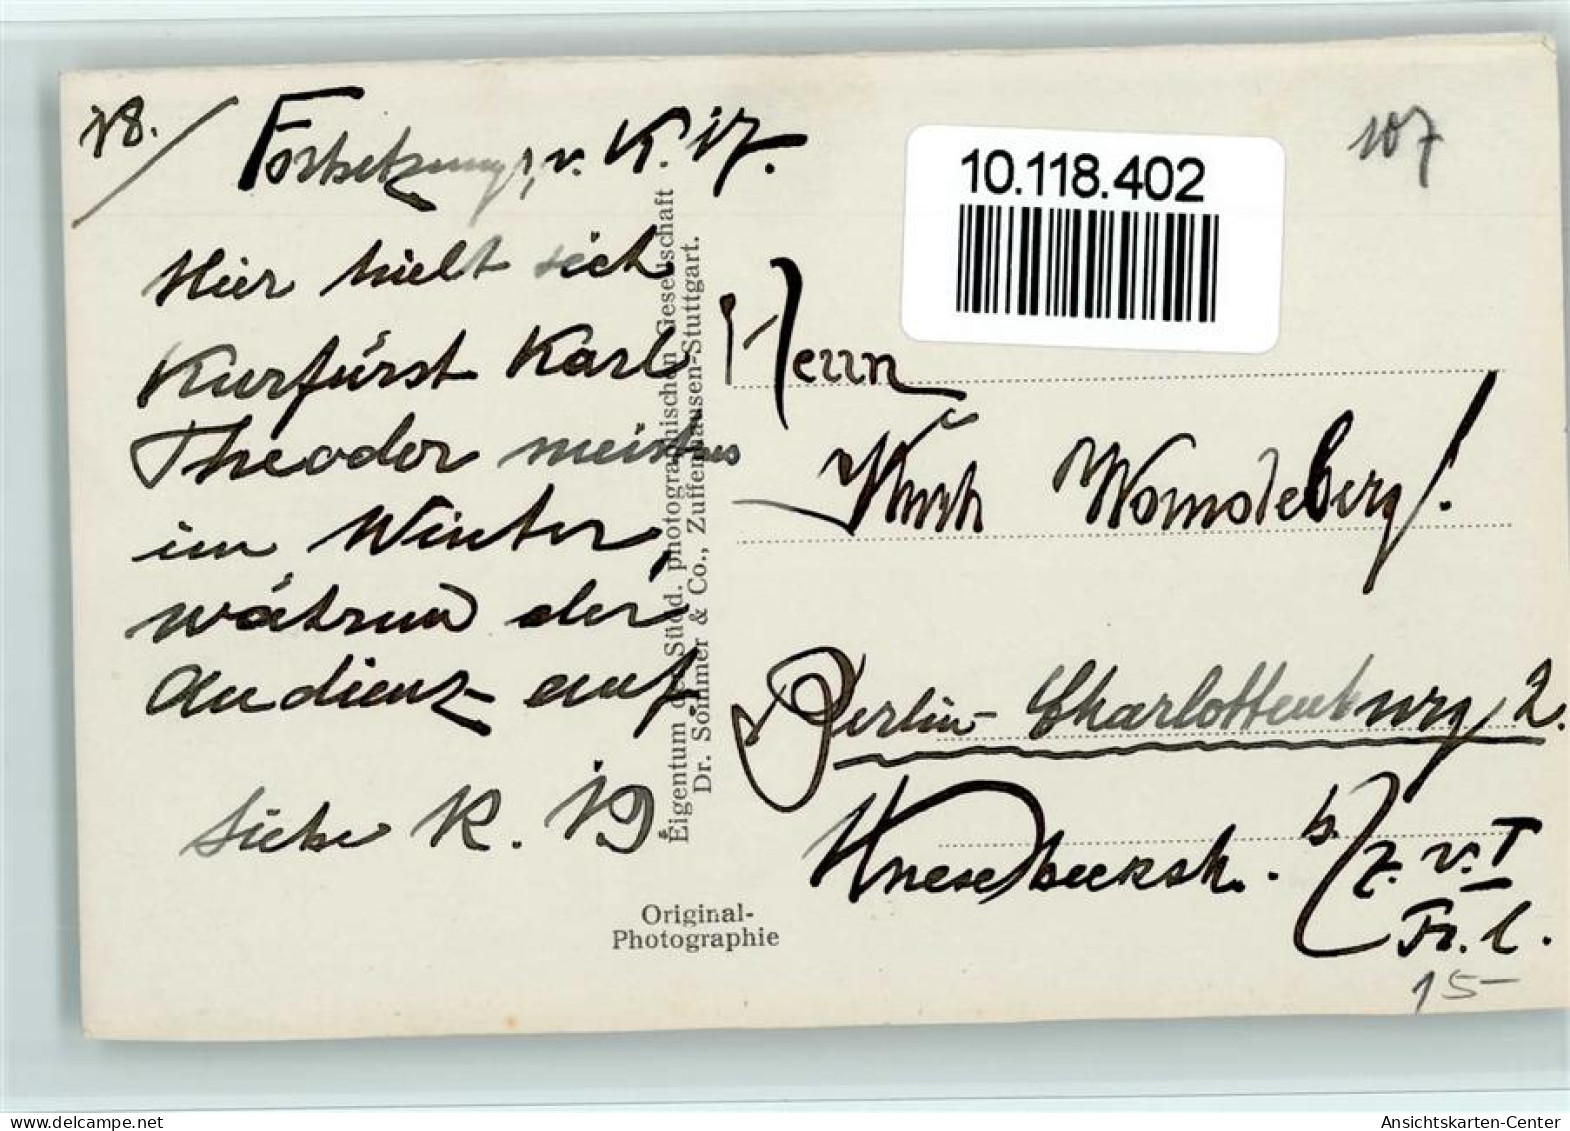 18.
Fortsetzung v. K. 17.
Hier hielt sich
Kurfürst Karl
Theodor meistens
im Winter,
während der
Audienz auf.
Siehe K. 19
Eigentum der Südd. photographischen Gesellschaft
Dr. Sommer & Co., Zuffenhausen-Stuttgart.
Original-
Photographie
107
10.118.402
Herrn
Berlin-Charlottenburg 2.
Knesebeckstr.
b.
z. v. I
Fr. l.
15-
delcampe.net
Ansichtskarten-Center